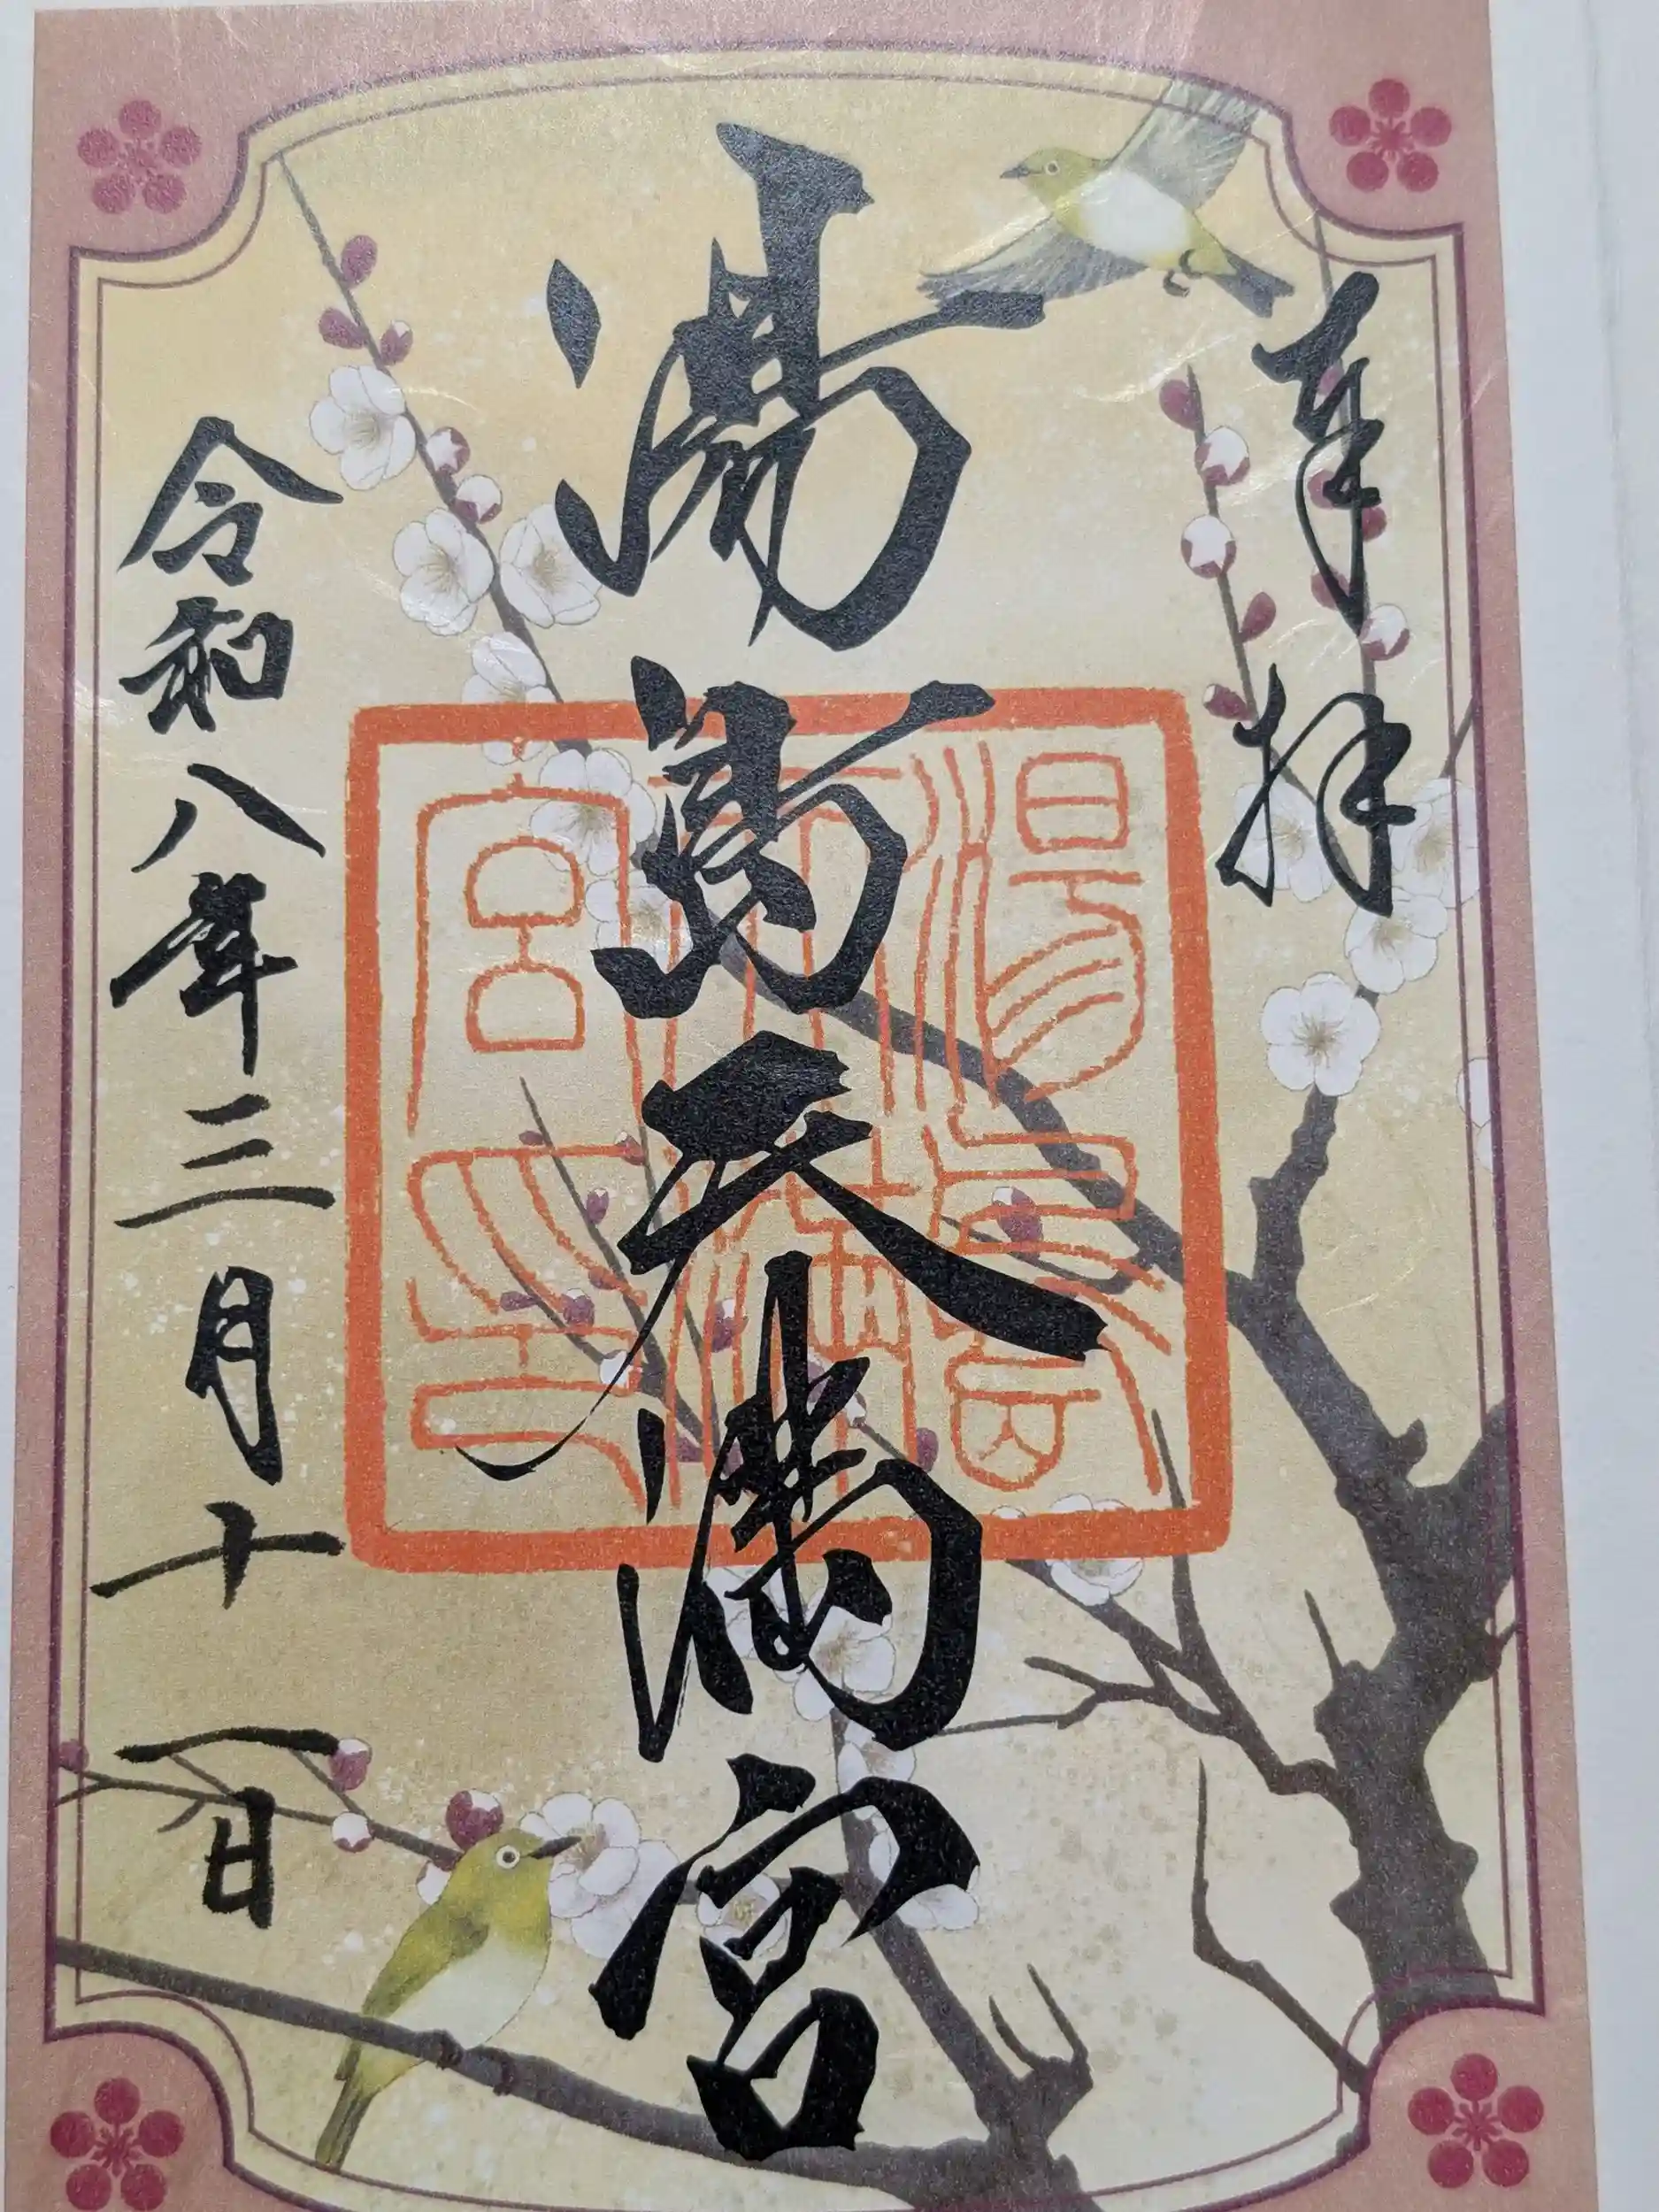 奉拝
湯島天満宮
湯島天満宮印
令和八年三月十一日